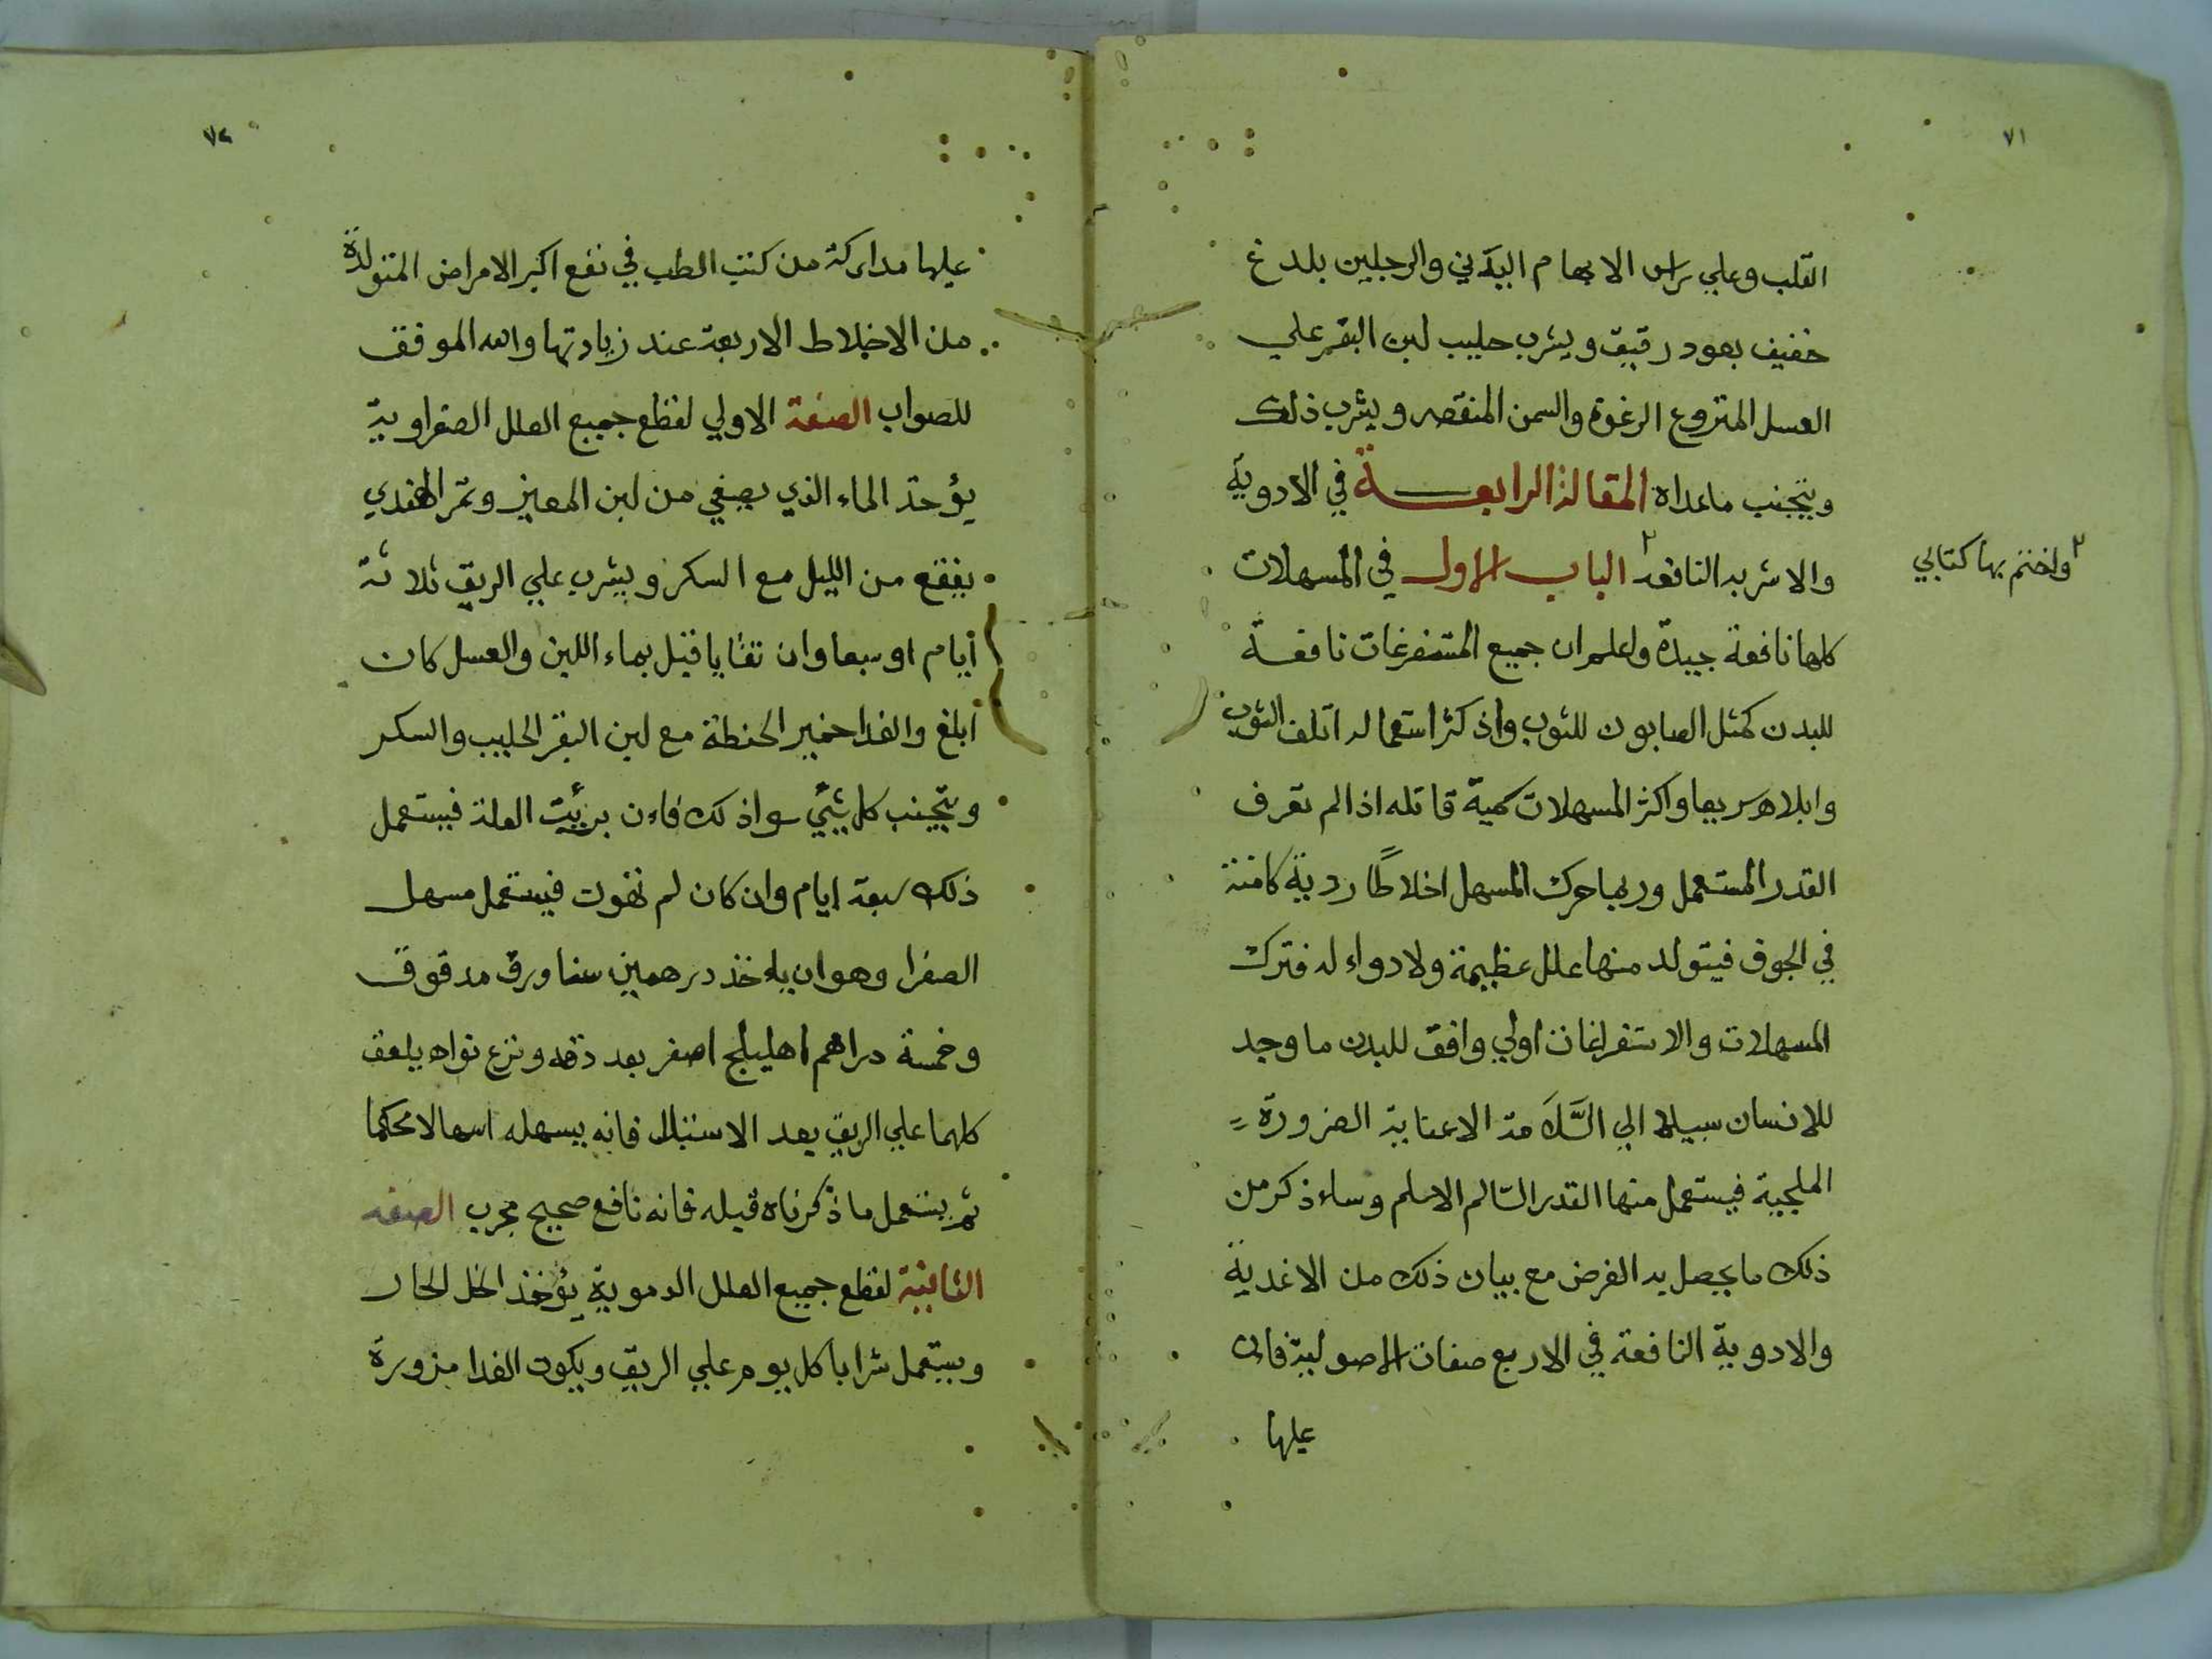 ٧١
القلب وعلي راس الابهام اليدني والرجلين بلدغ
خفيف بعود رقيق ويشرب حليب لبن البقر علي
العسل المنزوع الرغوة والسمن المنقصه ويشرب ذلك
ويتجنب ماعداه المقالة الرابعــــة في الادوية
والاشربه النافعه الباب الاول في المسهلات
واختم بها كتابي
كلها نافعة جيدة واعلم ان جميع المستفرغات نافعة
للبدن كمثل الصابون للثوب واذ كثر استعماله اتلف الثوب
وابلاه سريعا واكثر المسهلات سمية قاتله اذا لم تعرف
القدر المستعمل وربما حرك المسهل اخلاطًا ردية كامنة
في الجوف فيتولد منها علل عظيمة ولا دواء له فترك
المسهلات والاستفراغات اولي وافق للبدن ما وجد
للانسان سبيلا الي السَّلَامة الا عنابة الضرورة
الملجية فيستعمل منها القدر السّالم الاسلم وساء ذكر من
ذلك ما يحصل به الغرض مع بيان ذلك من الاغدية
والادوية النافعة في الاربع صفات الاصولية فان
عليها
٧٢
عليها مداركة من كتب الطب في نفع اكبر الامراض المتولدة
من الاخلاط الاربعة عند زيادتها والله الموفق
للصواب الصفة الاولي لقطع جميع العلل الصفراوية
يؤخذ الماء الذي يصفي من لبن المعيز وتمر الهندي
ينقع من الليل مع السكر ويشرب علي الريق ثلاثة
أيام او سبعا وان تقايا قبل بماء اللبن والعسل كان
ابلغ والغدا خمير الحنطة مع لبن البقر الحليب والسكر
ويتجنب كل شيئ سواذلك فاءن برئيت العلة فيستعمل
ذلك سبعة ايام وان كان لم تفوت فيستعمل مسهل
الصفرا وهوان ياءخذ درهمين سنا ورق مدقوق
وخمسة دراهم اهليلج اصفر بعد دقه ونزع نواه يلعق
كلهما علي الريق بعد الاستبلال فانه يسهله اسهالا محكما
ثم يستعمل ما ذكرناه قبله فانه نافع صحيح مجرب الصفه
الثانية لقطع جميع العلل الدموية يؤخذ الخل الحار
ويستعمل شرابا كل يوم علي الريق ويكون الغدا مزورة